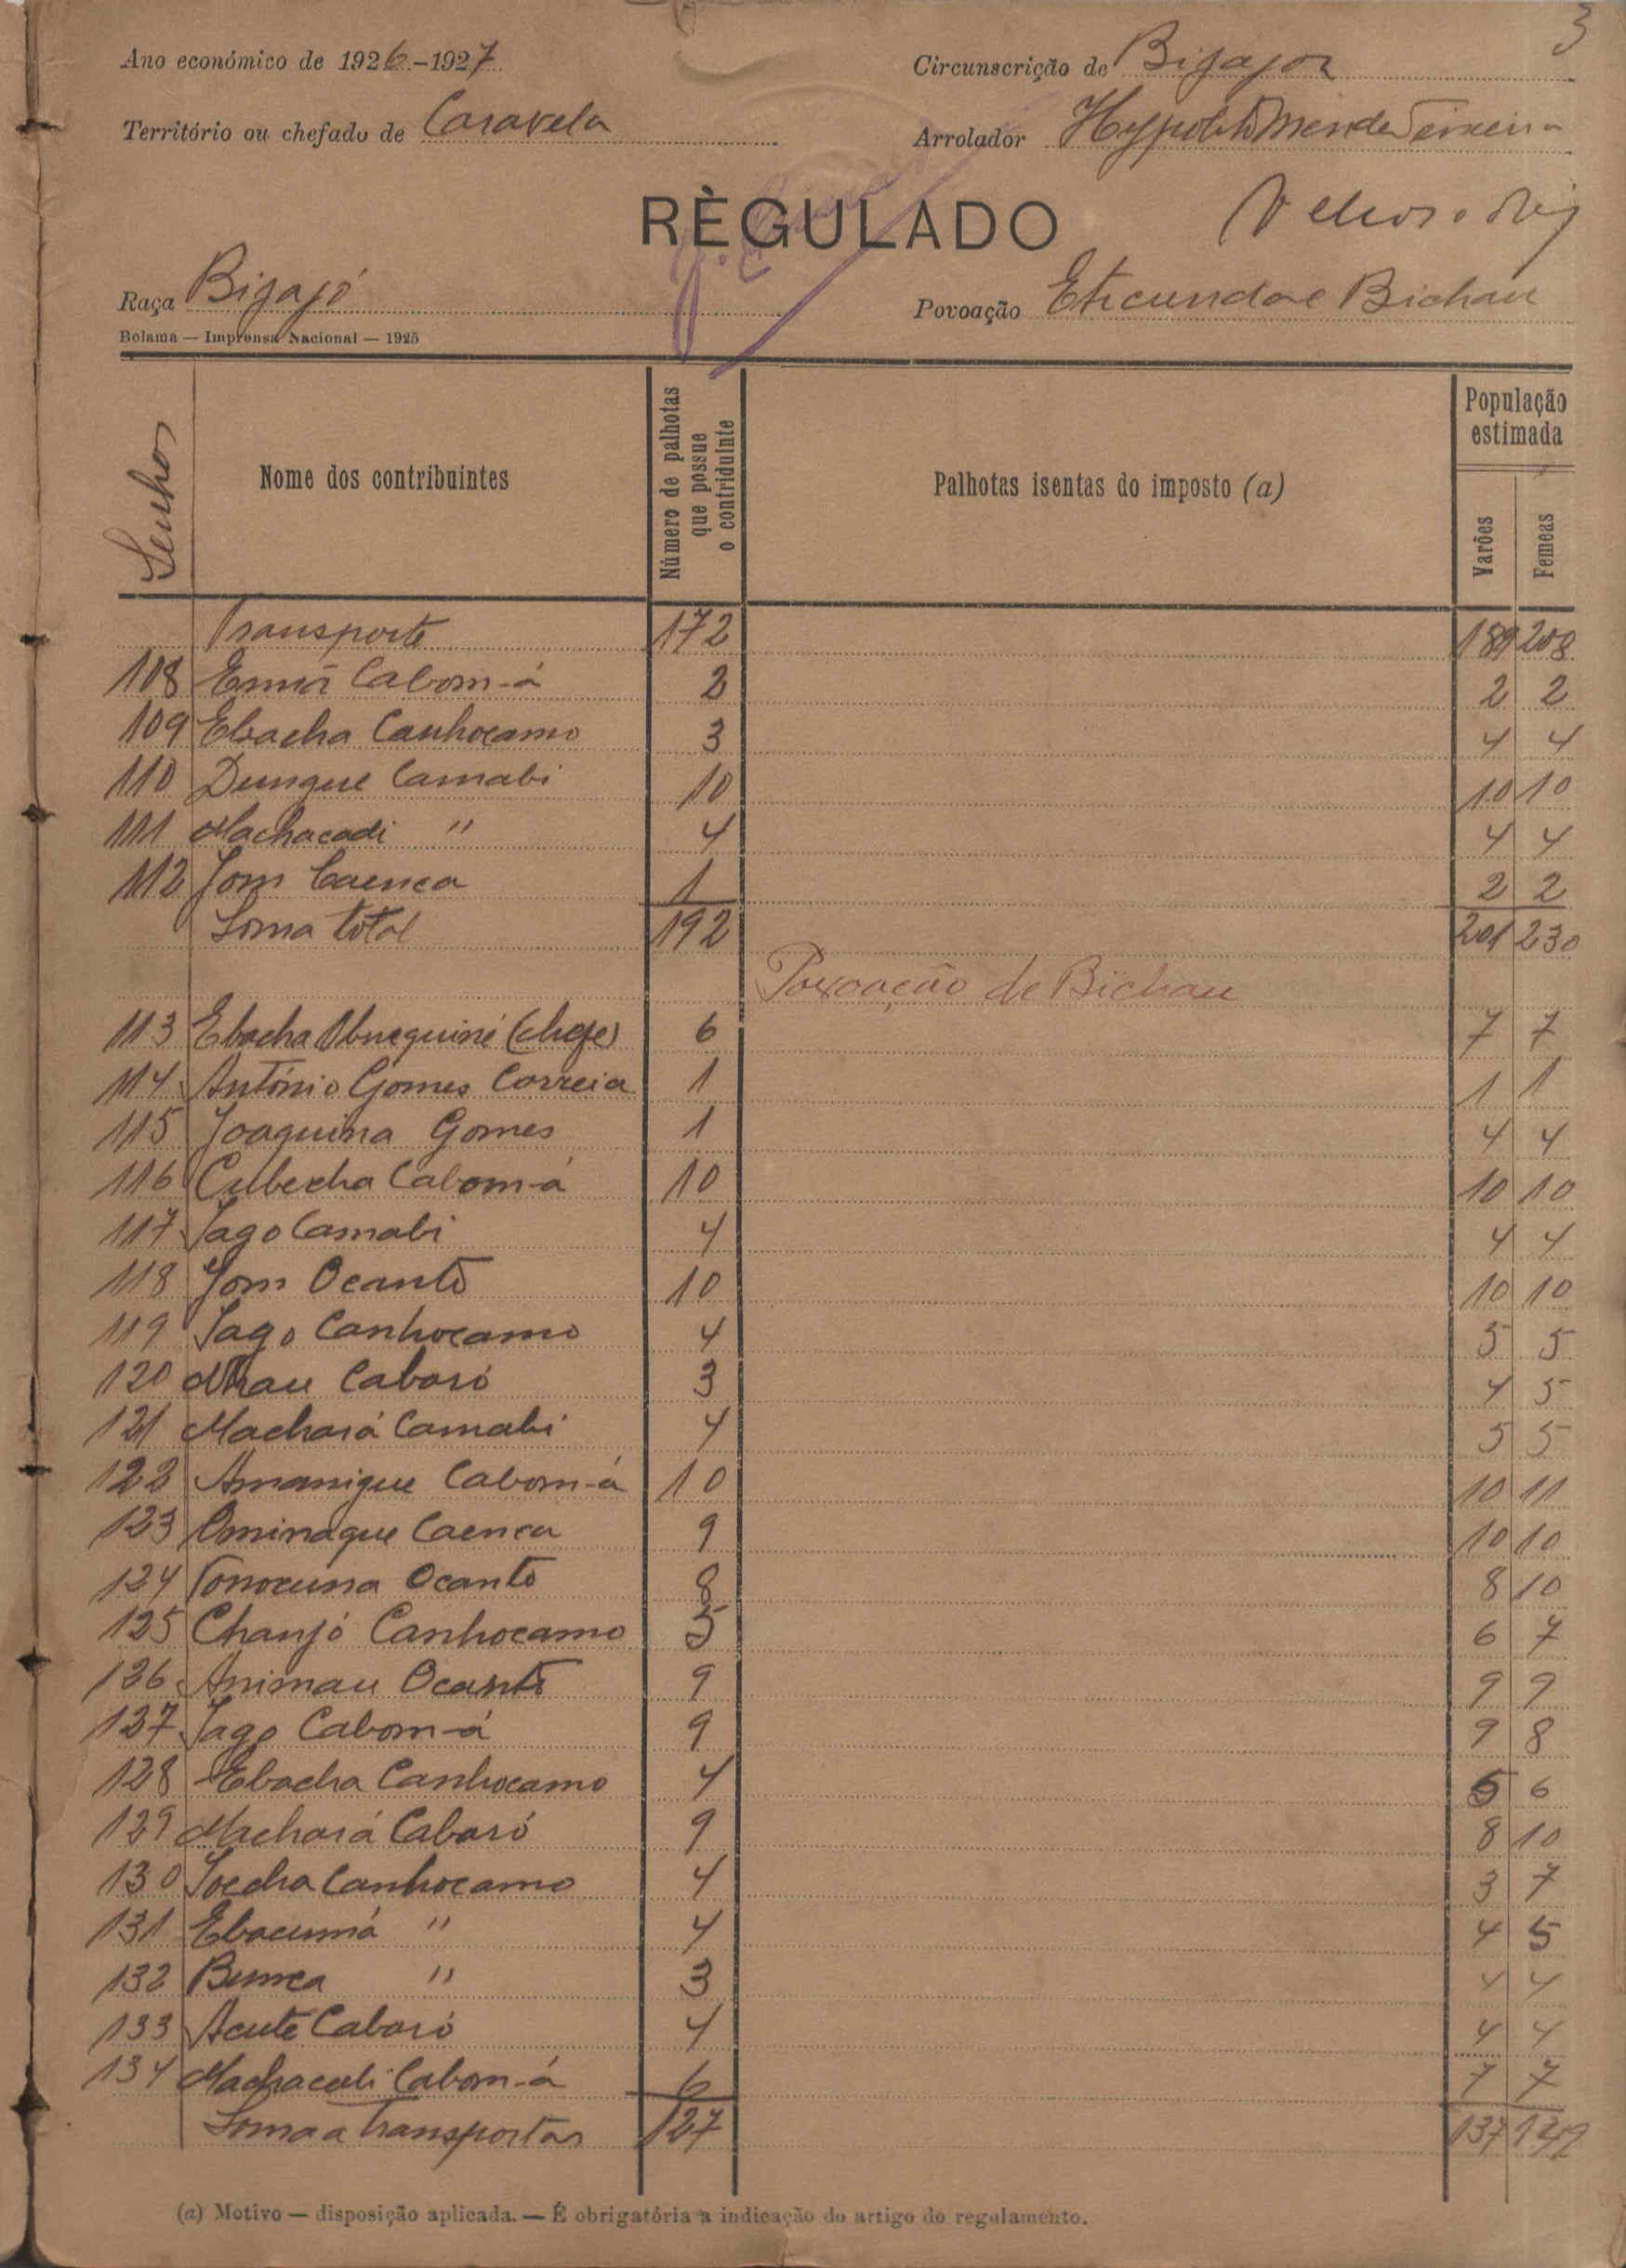 3
Ano económico de 1926-1927 Circunscrição de Bijagoz
Território ou chefado de Caravela Arrolador Hypolito Mendes Teixeira
RÈGULADO
Raça Bijajó Povoação Eticundo e Bichau
Bolama — Imprensa Nacional — 1925
Senhas Nome dos contribuintes Número de palhotas que possue o contriduinte Palhotas isentas do imposto (a) População estimada Varões Femeas
Transporte 172 189 208
108 Emá Cabom-á 2 2 2
109 Ebacha Canhocamo 3 4 4
110 Dunque Camabi 10 10 10
111 Machacadi " 4 4 4
112 Jom Caenca 1 2 2
Soma total 192 201 230
Povoação de Bichau
113 Ebacha Obuequiné (chefe) 6 7 7
114 António Gomes Correia 1 1 1
115 Joaquina Gomes 1 4 4
116 Cubecha Cabom-á 10 10 10
117 Jago Camabi 4 4 4
118 Jom Ocanto 10 10 10
119 Jago Canhocamo 4 5 5
120 Nhau Cabaró 3 4 5
121 Machará Camabi 4 5 5
122 Amanique Cabom-á 10 10 11
123 Ominaque Caenca 9 10 10
124 Tonocuna Ocanto 8 8 10
125 Chanjó Canhocamo 5 6 7
126 Animau Ocanto 9 9 9
127 Jago Cabom-á 9 9 8
128 Ebacha Canhocamo 4 5 6
129 Machará Cabaró 9 8 10
130 Joecha Canhocamo 4 3 7
131 Ebacumá " 4 4 5
132 Bunca " 3 4 4
133 Acute Cabaró 4 4 4
134 Machacadi Cabom-á 6 7 7
Soma a transportar 127 137 149
(a) Motivo — disposição aplicada. — É obrigatória a indicação do artigo do regulamento.